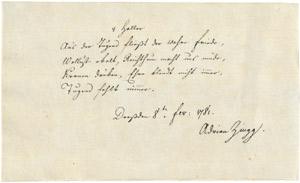 v Haller
Aus der Tugend fließt der wahre Friede,
Wollust ekelt, Reichthum macht uns müde,
Kronen drüken, Ehre blendt nicht imer,
Tugend fehlt nimer.
Dreßden 8t. febr. 1781.
Adrian Zingg.